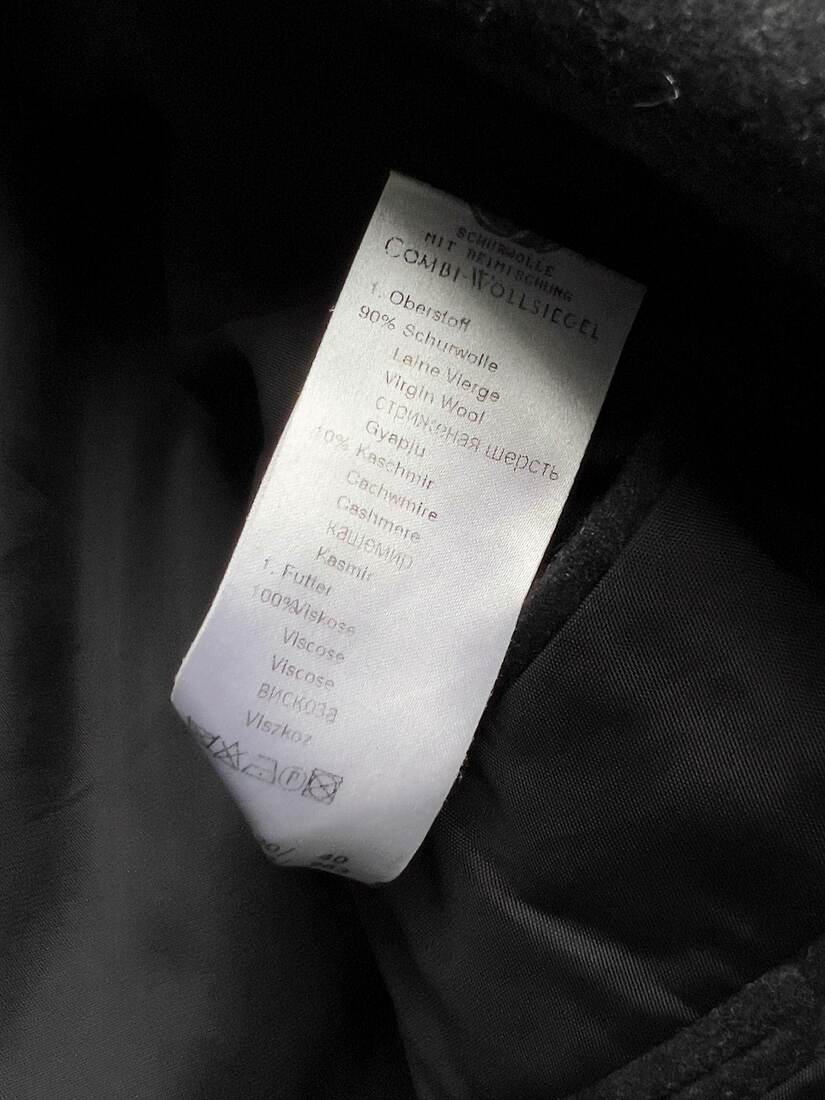 SCHURWOLLE
MIT BEIMISCHUNG
COMBI-WOLLSIEGEL
1. Oberstoff
90% Schurwolle
Laine Vierge
Virgin Wool
стриженая шерсть
Gyapju
10% Kaschmir
Cachwmire
Cashmere
кашемир
Kasmir
1. Futter
100%Viskose
Viscose
Viscose
вискоза
Viszkoz
40